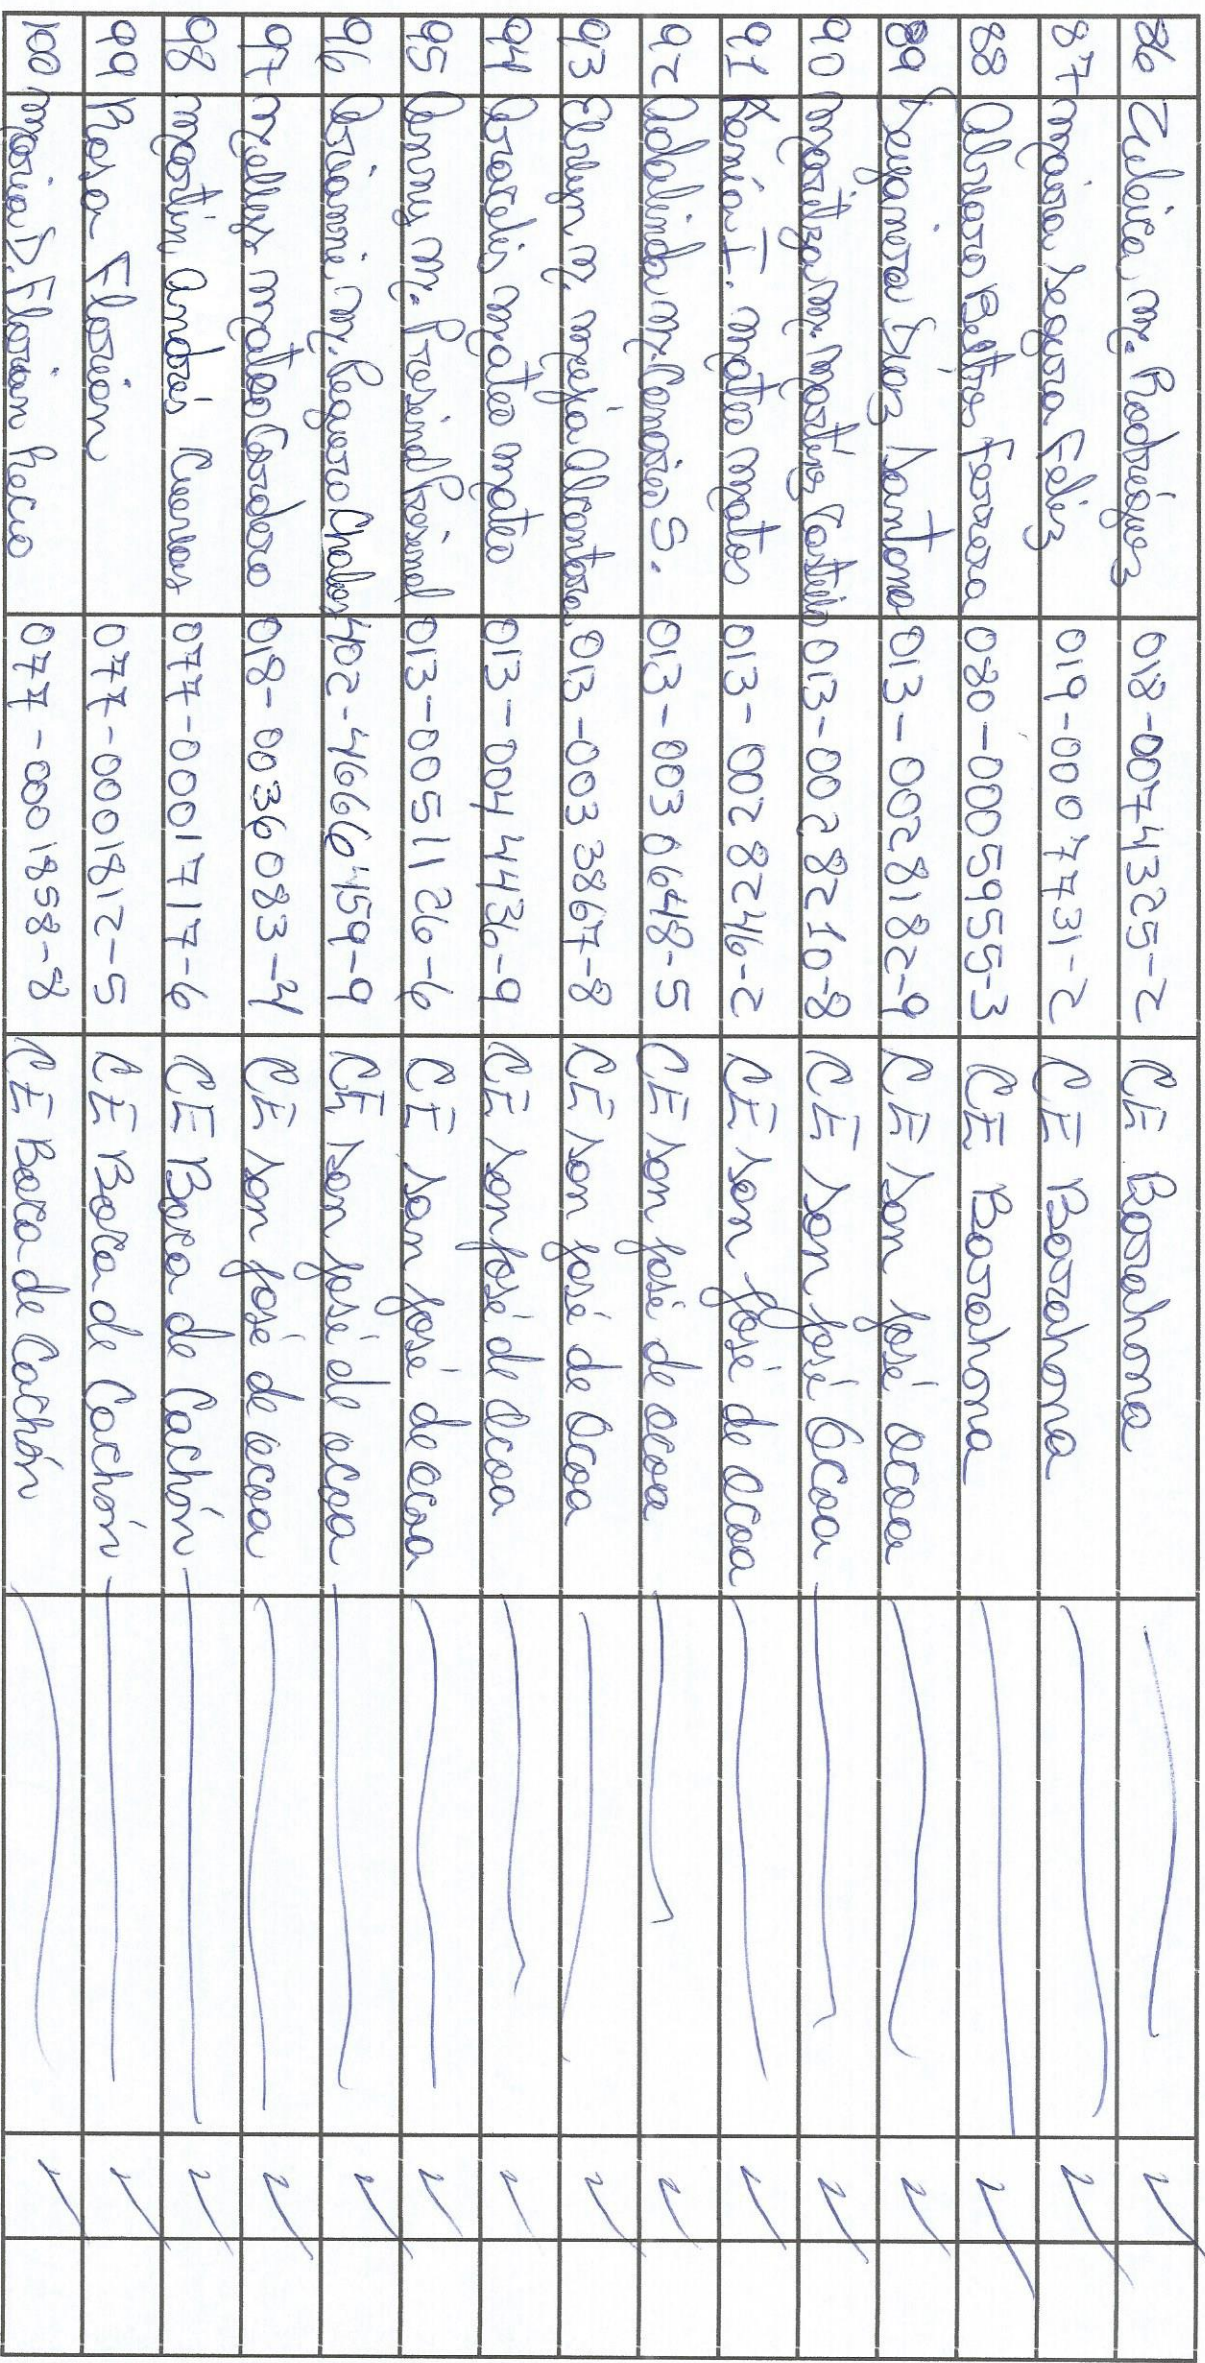 86 Zuleica M. Rodríguez 018-0074325-2 CE Barahona
87 Maira Segura Feliz 019-0007731-2 CE Barahona
88 Alvaro Beltres Ferrera 080-0005955-3 CE Barahona
89 Deyanira Díaz Santana 013-0028182-9 CE San José Ocoa
90 Maritza M. Martínez Castillo 013-0028210-8 CE San José Ocoa
91 Kenia I. Mateo Matos 013-0028246-2 CE San José de Ocoa
92 Adalinda M. Canario S. 013-0030648-5 CE San José de Ocoa
93 M. Mejía Alcantara 013-0033867-8 CE San José de Ocoa
94 Aracelis Mateo Mateo 013-0044436-9 CE San José de Ocoa
95 Annny M. Presinal Presinal 013-0051126-6 CE San José de Ocoa
96 Arianni M. Peguero Chalas 402-4666459-9 CE San José de Ocoa
97 Mateo Cordero 018-0036083-4 CE San José de Ocoa
98 Martín Andrés Cuevas 077-0001717-6 CE Boca de Cachón
99 Rosa Florián 077-0001812-5 CE Boca de Cachón
100 Maria D. Florian Recio 077-0001858-8 CE Boca de Cachón